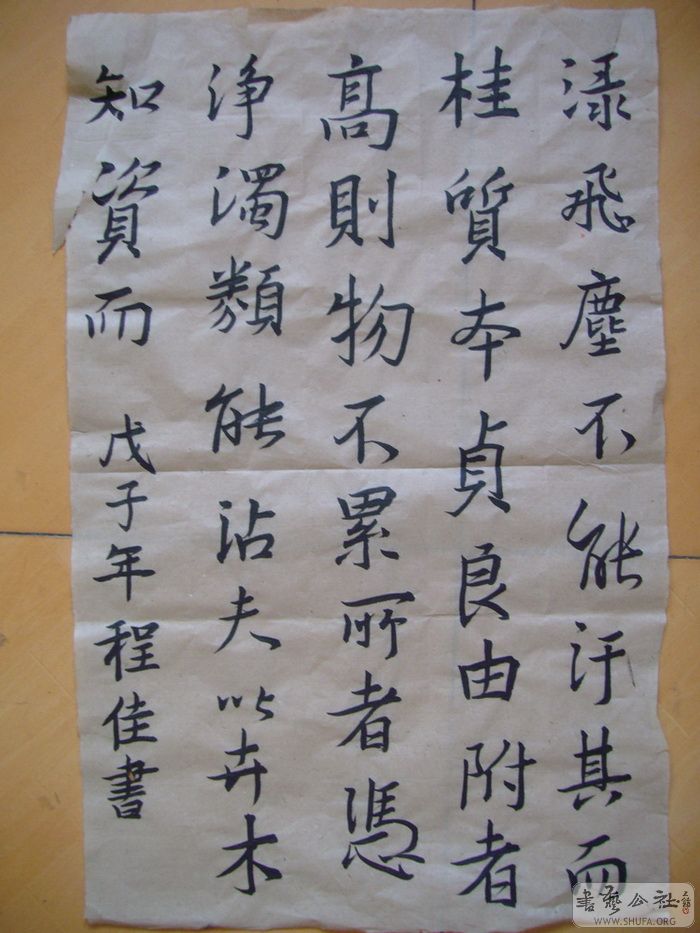 渌飛塵不能汙其而
桂質夲貞良由附者
髙則物不累所者憑
浄濁類能沾夫以卉木
知資而 戊子年程佳書
書藝公社
WWW.SHUFA.ORG